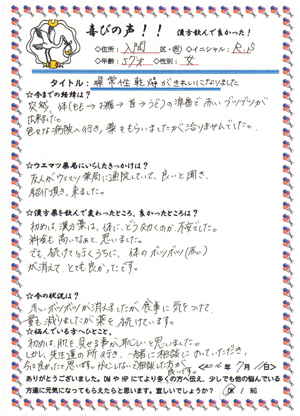 喜びの声！！ 漢方飲んで良かった！
◇住所： 入間 区・市 ◇イニシャル： R.S
◇年齢： 57才 ◇性別： 女
タイトル： 尋常性乾癬がきれいになりました
☆今までの経緯は？
突然、体(もも→お腹→首→うで)の順番で赤いブツブツが
出来ました。
色々な病院へ行き、薬をもらいましたが治りませんでした。
☆ウエマツ薬局にいらしたきっかけは？
友人がウエマツ薬局に通院していて、良いと聞き、
紹介頂き、来ました。
☆漢方薬を飲んで変わったところ、良かったところは？
初めは、漢方薬は、体にどうえいくのか、不安でした。
料金も高いなぁと、思いました。
でも、続けていくうちに、体のボツボツ(赤い)
が消えて、とても良かったです。
☆今の状況は？
赤いボツボツが消えましたが、食事に気をつけて
量も減りましたが薬を続けています。
☆悩んでいる方へひとこと。
初めは、肌を見せる事が恥しいと思いました。
しかし、先生達の所へ行き、一緒に相談にのっていただき、
今は良かったと思います。
良いです。
ありがとうございました。DMやHPにてより多くの方へ伝え、少しでも他の悩んでいる
方達に元気になってもらえたらと思います。宜しいでしょうか？ OK / NG